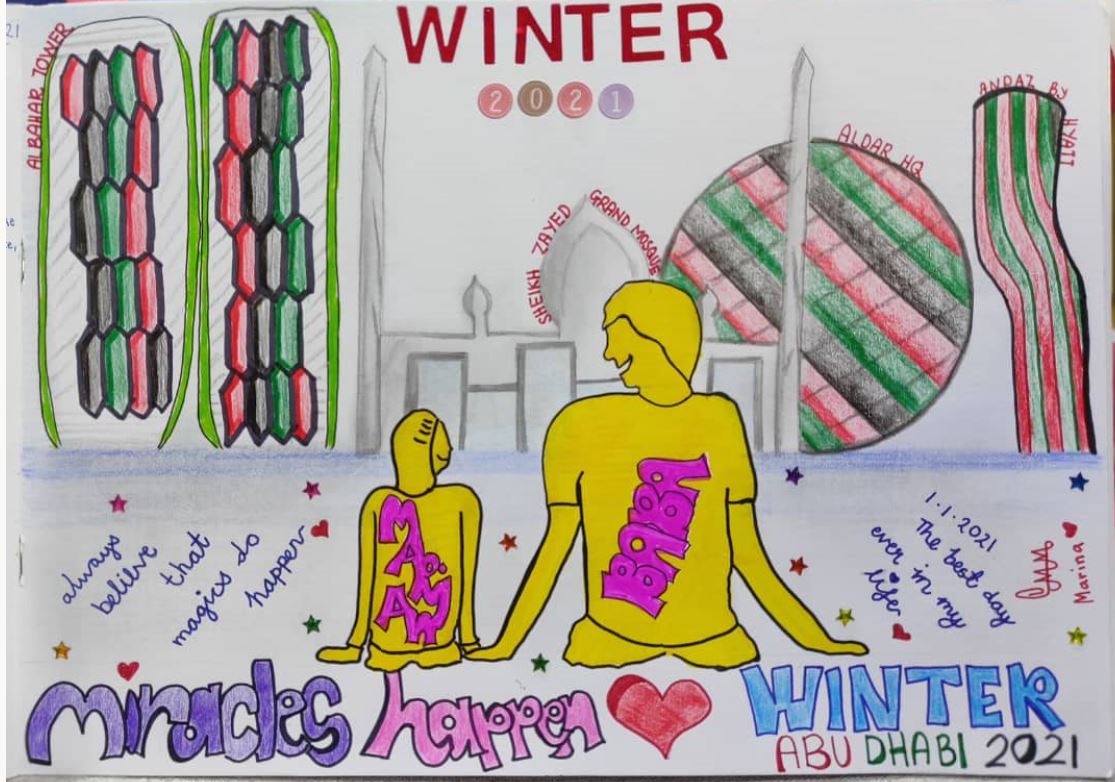 21
WINTER
2021
ALBAHAR TOWER
SHEIKH ZAYED GRAND MOSQUE
ALDAR HQ
ANDAZ BY HYATT
BABA
always
believe
that
magics do
happen
1.1.2021
The best day
ever in my
life
Marina
miracles happen
WINTER
ABU DHABI 2021